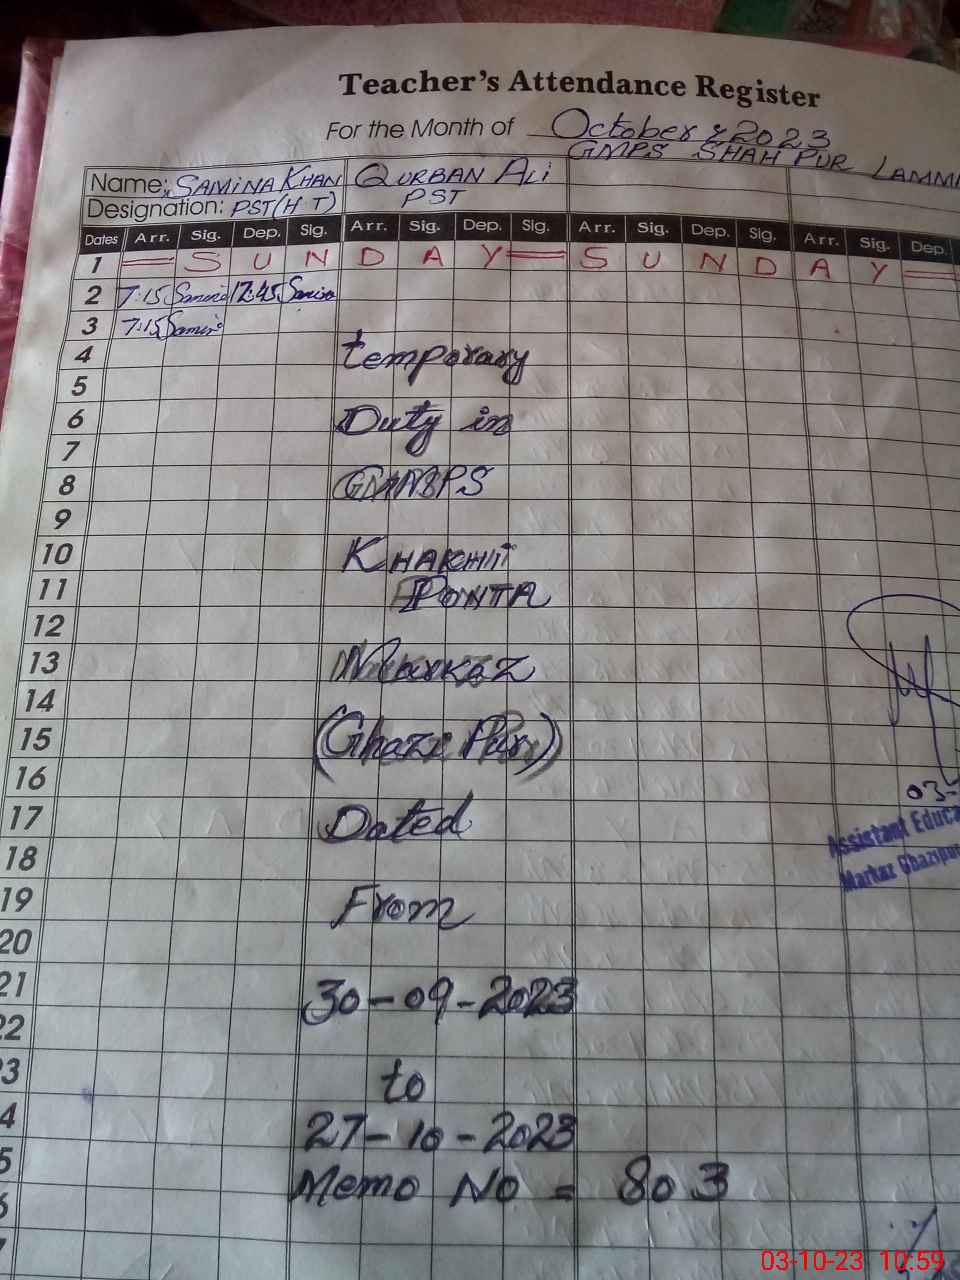 Teacher's Attendance Register
For the Month of October, 2023
GMPS SHAH PUR LAMMI
Name: SAMINA KHAN QURBAN ALI
Designation: PST(HT) PST
Dates Arr. Sig. Dep. Sig. Arr. Sig. Dep. Sig. Arr. Sig. Dep. Sig. Arr. Sig. Dep.
1 = S U N D A Y = S U N D A Y =
2 7:15 12:45
3 7:15
4 temporary
5
6 Duty in
7
8
9
10
11 PONTA
12
13 Markaz
14
15 (Ghazi Pur)
16
03-
17 Dated
Assistant Educa
18
Markaz Ghazipur
19 From
20
21 30-09-2023
22
3 to
4 27-10-2023
5 Memo No = 803
6
7
03-10-23 10:59